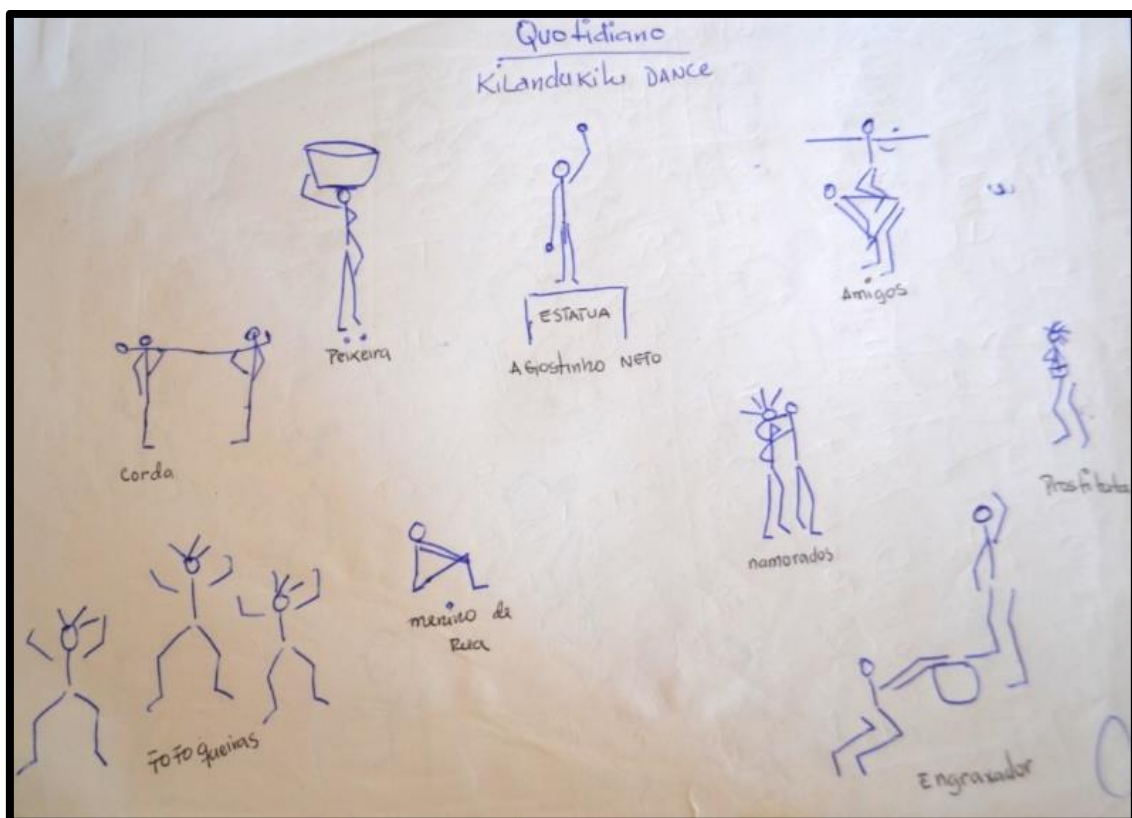 Quotidiano
Kilandukilu DANCE
Peixeira
ESTATUA
AGostinho NETO
Amigos
Corda
Prostituta
namorados
menino de
Rua
FoFoqueiras
Engraxador